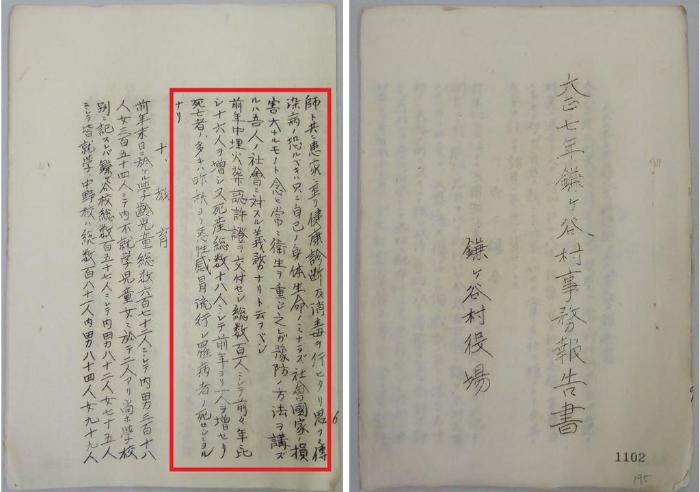 師ト共ニ患家ニ至リ健康診断及消毒ヲ行ヒタリ思フニ傳
染病ノ恐ルベキハ只ニ自己ノ身体生命ノミナラズ社會國家ノ損
害大ナルモノト念ヒ常ニ衛生ヲ重ジ之レガ豫防ノ方法ヲ講ズ
ルハ吾人ノ社會ニ対スル義務ナリト云フベシ
前年中埋火葬認許證ヲ交付セシ総数百人ニシテ前々年比
シ十六人ヲ増シ又死産総数十八人ニシテ前年ヨリ一人ヲ増セリ
死亡者ノ多キハ昨秋ヨリ悪性感冒流行シ罹病者ノ死セシニヨル
ナリ
十、教育
前年末日ニ於ケル学齢児童総数六百七十二人ニシテ内男三百十八
人女三百五十四人ニテ内不就学児童女ニ於テ二人アリ尚学校
別ニ記スレバ鎌ヶ谷校総数百五十七人ニシテ内男八十二人女七十五人
ニシテ皆就学中野校ハ総数百八十三人内男八十四人女九十九人
6
大正七年鎌ヶ谷村事務報告書
鎌ヶ谷村役場
1102
195